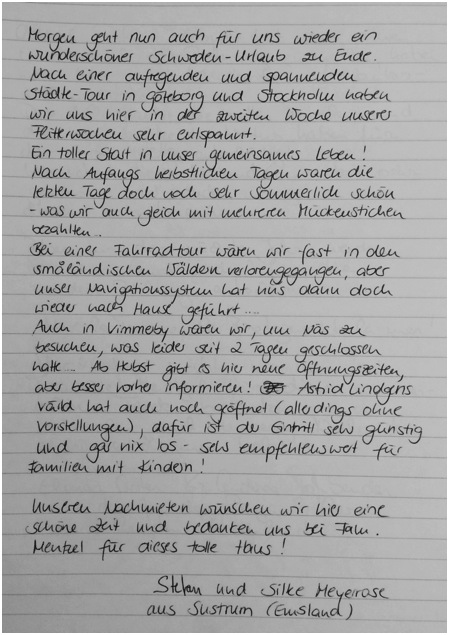 Morgen geht nun auch für uns wieder ein
wunderschöner Schweden-Urlaub zu Ende.
Nach einer aufregenden und spannenden
Städte-Tour in Göteborg und Stockholm haben
wir uns hier in der zweiten Woche unserer
Flitterwochen sehr entspannt.
Ein toller Start in unser gemeinsames Leben!
Nach Anfangs herbstlichen Tagen waren die
letzten Tage doch noch sehr sommerlich schön
- was wir auch gleich mit mehreren Mückenstichen
bezahlten...
Bei einer Fahrradtour wären wir fast in den
småländischen Wäldern verlorengegangen, aber
unser Navigationssystem hat uns dann doch
wieder nach Hause geführt....
Auch in Vimmeby waren wir, um Näs zu
besuchen, was leider seit 2 Tagen geschlossen
hatte... Ab Herbst gibt es hier neue Öffnungszeiten,
aber besser vorher informieren! Astrid Lindgrens
värld hat auch noch geöffnet (allerdings ohne
Vorstellungen), dafür ist der Eintritt sehr günstig
und gar nix los - sehr empfehlenswert für
Familien mit Kindern!
Unseren Nachmietern wünschen wir hier eine
schöne Zeit und bedanken uns bei Fam.
Mentzel für dieses tolle Haus!
Stefan und Silke Meyerrose
aus Sustrum (Emsland)